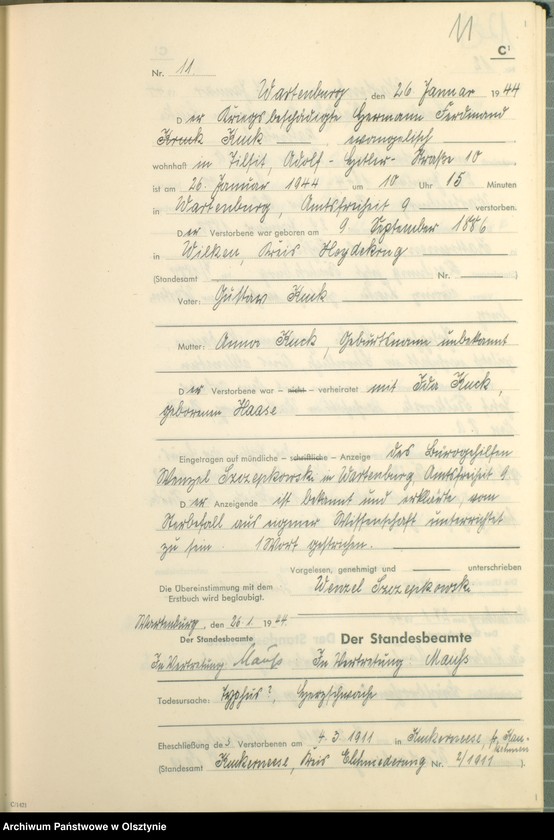 11
C¹
Nr. 11
Wartenburg, den 26. Januar 1944
Der Kriegsbeschädigte Hermann Ferdinand
Kuck — evangelisch
wohnhaft in Tilsit, Adolf-Hitler-Straße 10
ist am 26. Januar 1944 um 10 Uhr 15 Minuten
in Wartenburg, Amtsfreiheit 9 verstorben.
Der Verstorbene war geboren am 9. September 1886
in Wilken, Kreis Heydekrug
(Standesamt — Nr. —)
Vater: Gustav Kuck
Mutter: Anna Kuck, Geburtsname unbekannt
Der Verstorbene war – nicht – verheiratet mit Ida Kuck,
geborenen Haase
Eingetragen auf mündliche – schriftliche – Anzeige des Bürogehilfen
Wenzel Szczepkowski in Wartenburg, Amtsfreiheit 9
Der Anzeigende ist bekannt und erklärte vom
Sterbefall aus eigener Wissenschaft unterrichtet
zu sein. 1 Wort gestrichen.
Vorgelesen, genehmigt und — unterschrieben
Wenzel Szczepkowski
Die Übereinstimmung mit dem
Erstbuch wird beglaubigt.
Wartenburg, den 26. 1. 1944
Der Standesbeamte
In Vertretung
Der Standesbeamte
In Vertretung
Todesursache: Typhus?, Herzschwäche
Eheschließung des Verstorbenen am 4. 3. 1911 in Kuckerneese,
(Standesamt Kuckerneese, Kreis Elchniederung Nr. 2/1911)
C(142)
Archiwum Państwowe w Olsztynie